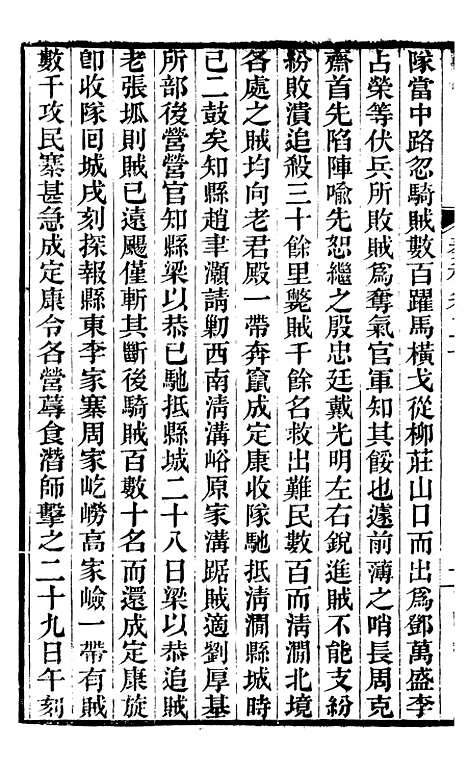 隊當中路忽騎賊數百躍馬橫戈從柳莊山口而出爲鄧萬盛李
占榮等伏兵所敗賊爲奪氣官軍知其餒也遽前薄之哨長周克
齋首先陷陣喻先恕繼之殷忠廷戴光明左右銳進賊不能支紛
紛敗潰追殺三十餘里斃賊千餘名救出難民數百而淸澗北境
各處之賊均向老君殿一帶奔竄成定康收隊馳抵淸澗縣城時
已二鼓矣知縣趙聿灝請勦西南淸溝峪原家溝踞賊適劉厚基
所部後營營官知縣梁以恭已馳抵縣城二十八日梁以恭追賊
老張坬則賊已遠颺僅斬其斷後騎賊百數十名而還成定康旋
卽收隊回城戌刻探報縣東李家寨周家屹嶗高家嶮一帶有賊
數千攻民寨甚急成定康令各營蓐食潛師擊之二十九日午刻